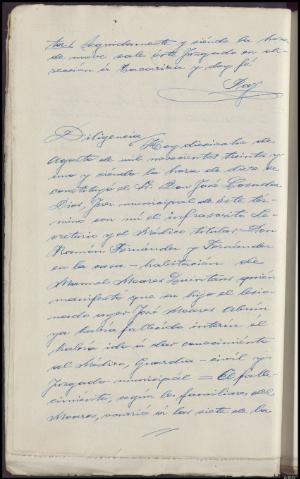 tas. Seguidamente y siendo la hora
de nueve sale este Juzgado en di-
rección á y doy fé
Diligencia Hoy dieciocho de
Agosto de mil novecientos treinta y
uno y siendo la hora de diez se
constituyó el Sr. Don José Losada
Dias, Juez municipal de este ter-
mino con mi el infrascrito Se-
cretario y el Médico titular Don
Román Fernández y Fernández
en la casa-habitación de
Manuel Moares Quintans quien
manifestó que su hijo el lesio-
nado ayer José Moares
ya había fallecido interin él
había ido á dar conocimiento
al Médico, Guardia-civil y
Juzgado municipal = El falle-
cimiento, según los familiares del
Moares, ocurrió á las siete de la